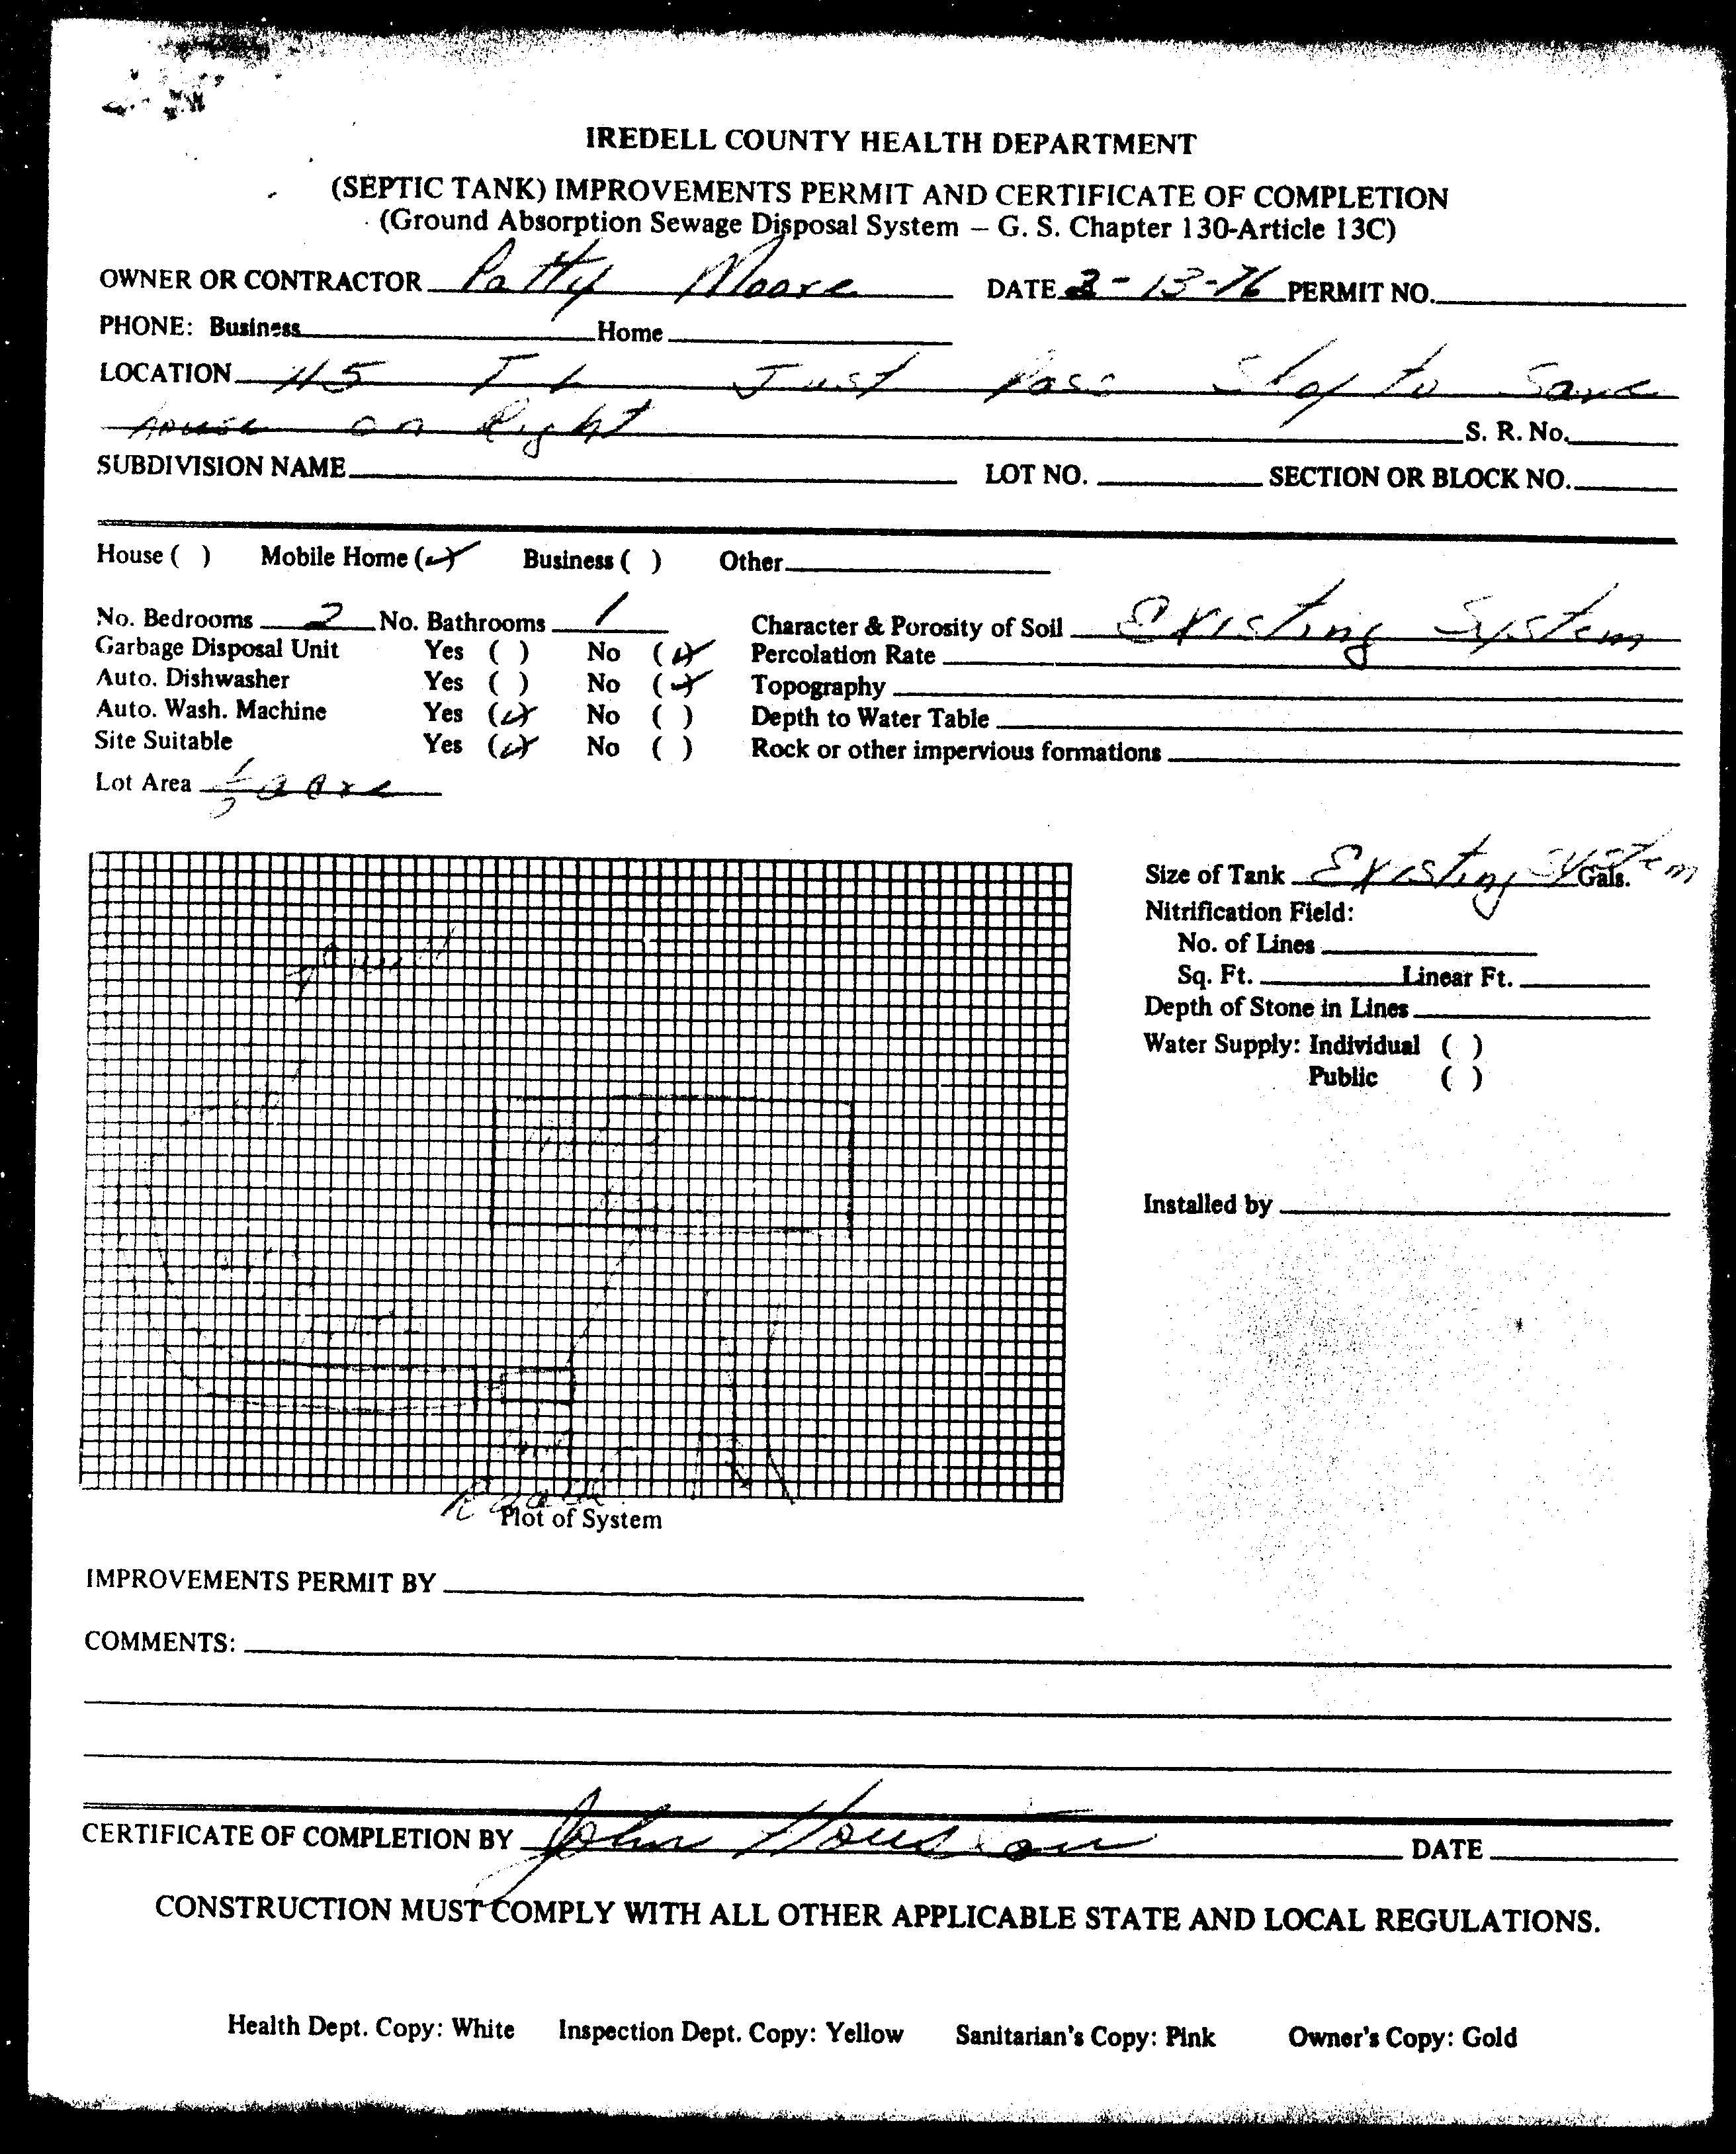 IREDELL COUNTY HEALTH DEPARTMENT
(SEPTIC TANK) IMPROVEMENTS PERMIT AND CERTIFICATE OF COMPLETION
(Ground Absorption Sewage Disposal System – G. S. Chapter 130-Article 13C)
OWNER OR CONTRACTOR Patty Moore DATE 3-13-76 PERMIT NO.
PHONE: Business Home
LOCATION 115 T L Just Pass Stop to Save
house on Right S. R. No.
SUBDIVISION NAME LOT NO. SECTION OR BLOCK NO.
House ( ) Mobile Home (✓) Business ( ) Other
No. Bedrooms 2 No. Bathrooms 1 Character & Porosity of Soil Existing System
Garbage Disposal Unit Yes ( ) No (✓) Percolation Rate
Auto. Dishwasher Yes ( ) No (✓) Topography
Auto. Wash. Machine Yes (✓) No ( ) Depth to Water Table
Site Suitable Yes (✓) No ( ) Rock or other impervious formations
Lot Area 1/2 acre
Size of Tank Existing System Gals.
Nitrification Field:
No. of Lines
Sq. Ft. Linear Ft.
Depth of Stone in Lines
Water Supply: Individual ( )
Public ( )
Installed by
Road
Plot of System
IMPROVEMENTS PERMIT BY
COMMENTS:
CERTIFICATE OF COMPLETION BY John Houston DATE
CONSTRUCTION MUST COMPLY WITH ALL OTHER APPLICABLE STATE AND LOCAL REGULATIONS.
Health Dept. Copy: White Inspection Dept. Copy: Yellow Sanitarian's Copy: Pink Owner's Copy: Gold